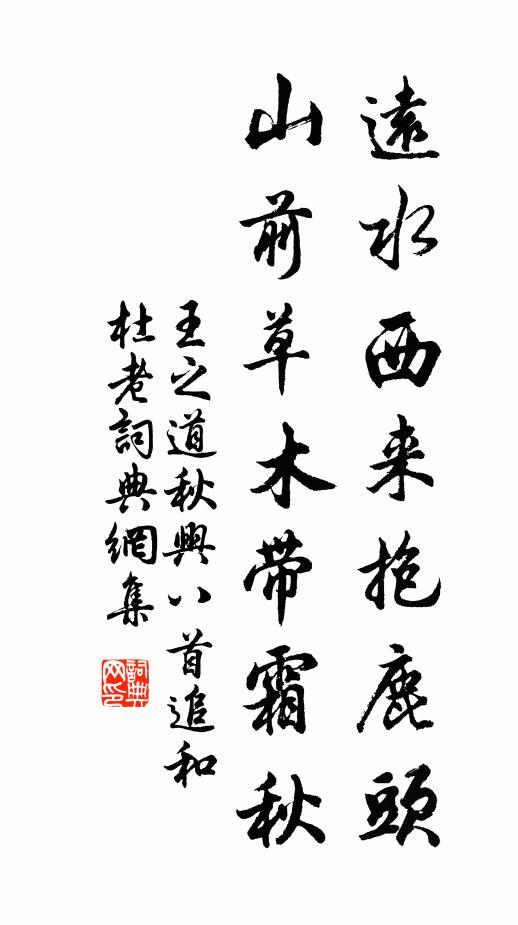 遠水西来抱鹿頭
山前草木帶霜秋
王之道秋興八首追和
杜老詞典網集
詞典网印